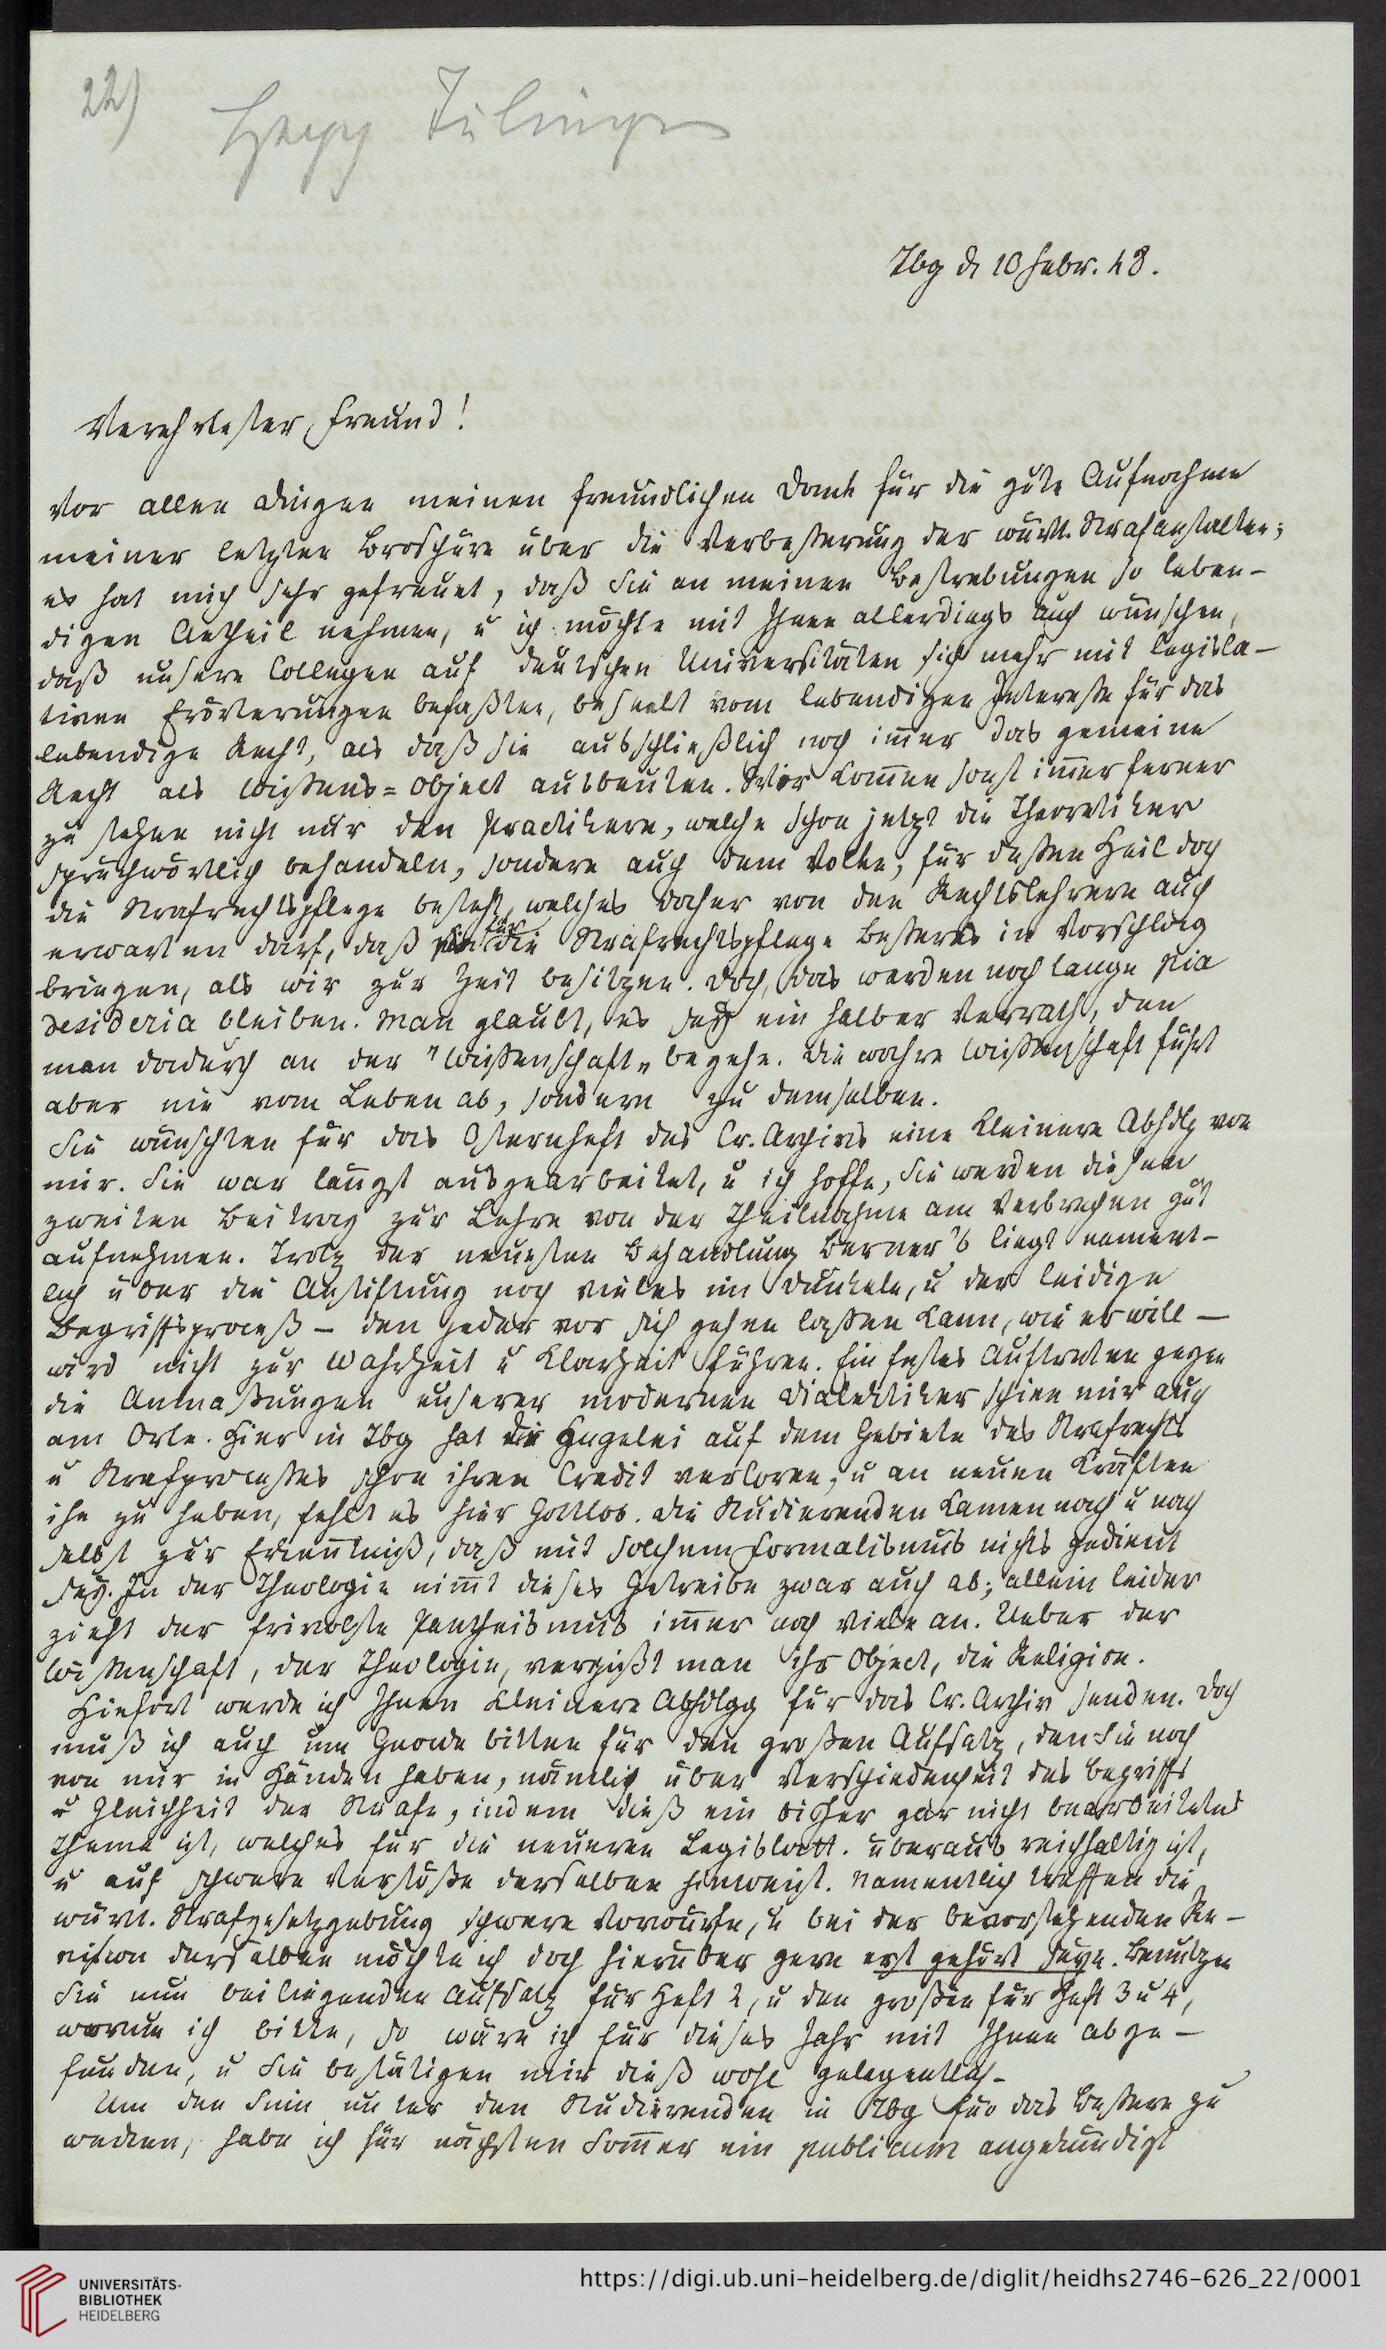 22)
Hepp Tübingen
Tbg d. 10 Febr. 48.
Verehrtester Freund!
Vor allen Dingen meinen freundlichen Dank für die gute Aufnahme
meiner letzten Broschüre über die Verbesserung der württ. Strafanstalten;
es hat mich sehr gefreuet, daß Sie an meinen Bestrebungen so leben-
digen Antheil nehmen, u ich möchte mit Ihnen allerdings auch wünschen,
daß unsere Collegen auf deutschen Universitäten sich mehr mit legisla-
tiven Erörterungen befaßten, beseelt vom lebendigen Interesse für das
lebendige Recht, als daß sie ausschließlich noch immer das gemeine
Recht als Wissens-Object ausbeuten. Wir kommen sonst immer ferner
zu stehen nicht nur den Practikern, welche schon jetzt die Theoretiker
spruchwörtlich behandeln, sondern auch dem Volke, für dessen Heil doch
die Strafrechtspflege besteht, welches daher von den Rechtslehrern auch
erwarten darf, daß sie für die Strafrechtspflege Besseres in Vorschlag
bringen, als wir zur Zeit besitzen. Doch, das werden noch lange pia
desideria bleiben. Man glaubt, es sey ein halber Verrath, den
man dadurch an der "Wissenschaft" begehe. Die wahre Wissenschaft führt
aber nie vom Leben ab, sondern zu demselben.
Sie wünschten für das Osternheft des Cr. Archivs eine kleinere Abhdlg von
mir. Sie war längst ausgearbeitet, u ich hoffe, Sie werden diesen
zweiten Beitrag zur Lehre von der Theilnahme am Verbrechen gut
aufnehmen. Trotz der neuesten Behandlung Berner's liegt nament-
lich über die Anstiftung noch vieles im Dunkeln, u der leidige
Begriffsproceß – den jeder vor sich gehen lassen kann, wie er will –
wird nicht zur Wahrheit u Klarheit führen. Ein festes Auftreten gegen
die Anmaßungen unserer modernen Dialektiker schien mir auch
am Orte. Hier in Tbg hat die Hegelei auf dem Gebiete des Strafrechts
u Strafprocesses schon ihren Credit verloren, u an neuen Kräften
ihn zu heben, fehlt es hier Gottlob. Die Studierenden kamen nach u nach
selbst zur Erkenntniß, daß mit solchem Formalismus nichts gedient
sey. In der Theologie nimmt dieses Getreibe zwar auch ab; allein leider
zieht der frivolste Pantheismus immer noch viele an. Ueber der
Wissenschaft, der Theologie, vergißt man ihr Object, die Religion.
Hinfort werde ich Ihnen kleinere Abhdlgg für das Cr. Archiv senden. Doch
muß ich auch um Gnade bitten für den großen Aufsatz, den Sie noch
von mir in Händen haben, nämlich über Verschiedenheit des Begriffs
u Gleichheit der Strafe, indem dieß ein bisher gar nicht bearbeitetes
Thema ist, welches für die neueren Legislatt. überaus reichhaltig ist,
u auf schwere Verstöße derselben hinweist. Namentlich treffen die
württ. Strafgesetzgebung schwere Vorwürfe, u bei der bevorstehenden Re-
vision derselben möchte ich doch hierüber gern erst gehört seyn. Benutzen
Sie nun beiliegenden Aufsatz für Heft 2, u den großen für Heft 3 u 4,
worum ich bitte, so wäre ich für dieses Jahr mit Ihnen abge-
funden, u Sie bestätigen mir dieß wohl gelegentlich.
Um den Sinn unter den Studierenden in Tbg für das Bessere zu
wecken, habe ich für nächsten Sommer ein publicum angekündigt
UNIVERSITÄTS-
BIBLIOTHEK
HEIDELBERG
https://digi.ub.uni-heidelberg.de/diglit/heidhs2746-626_22/0001